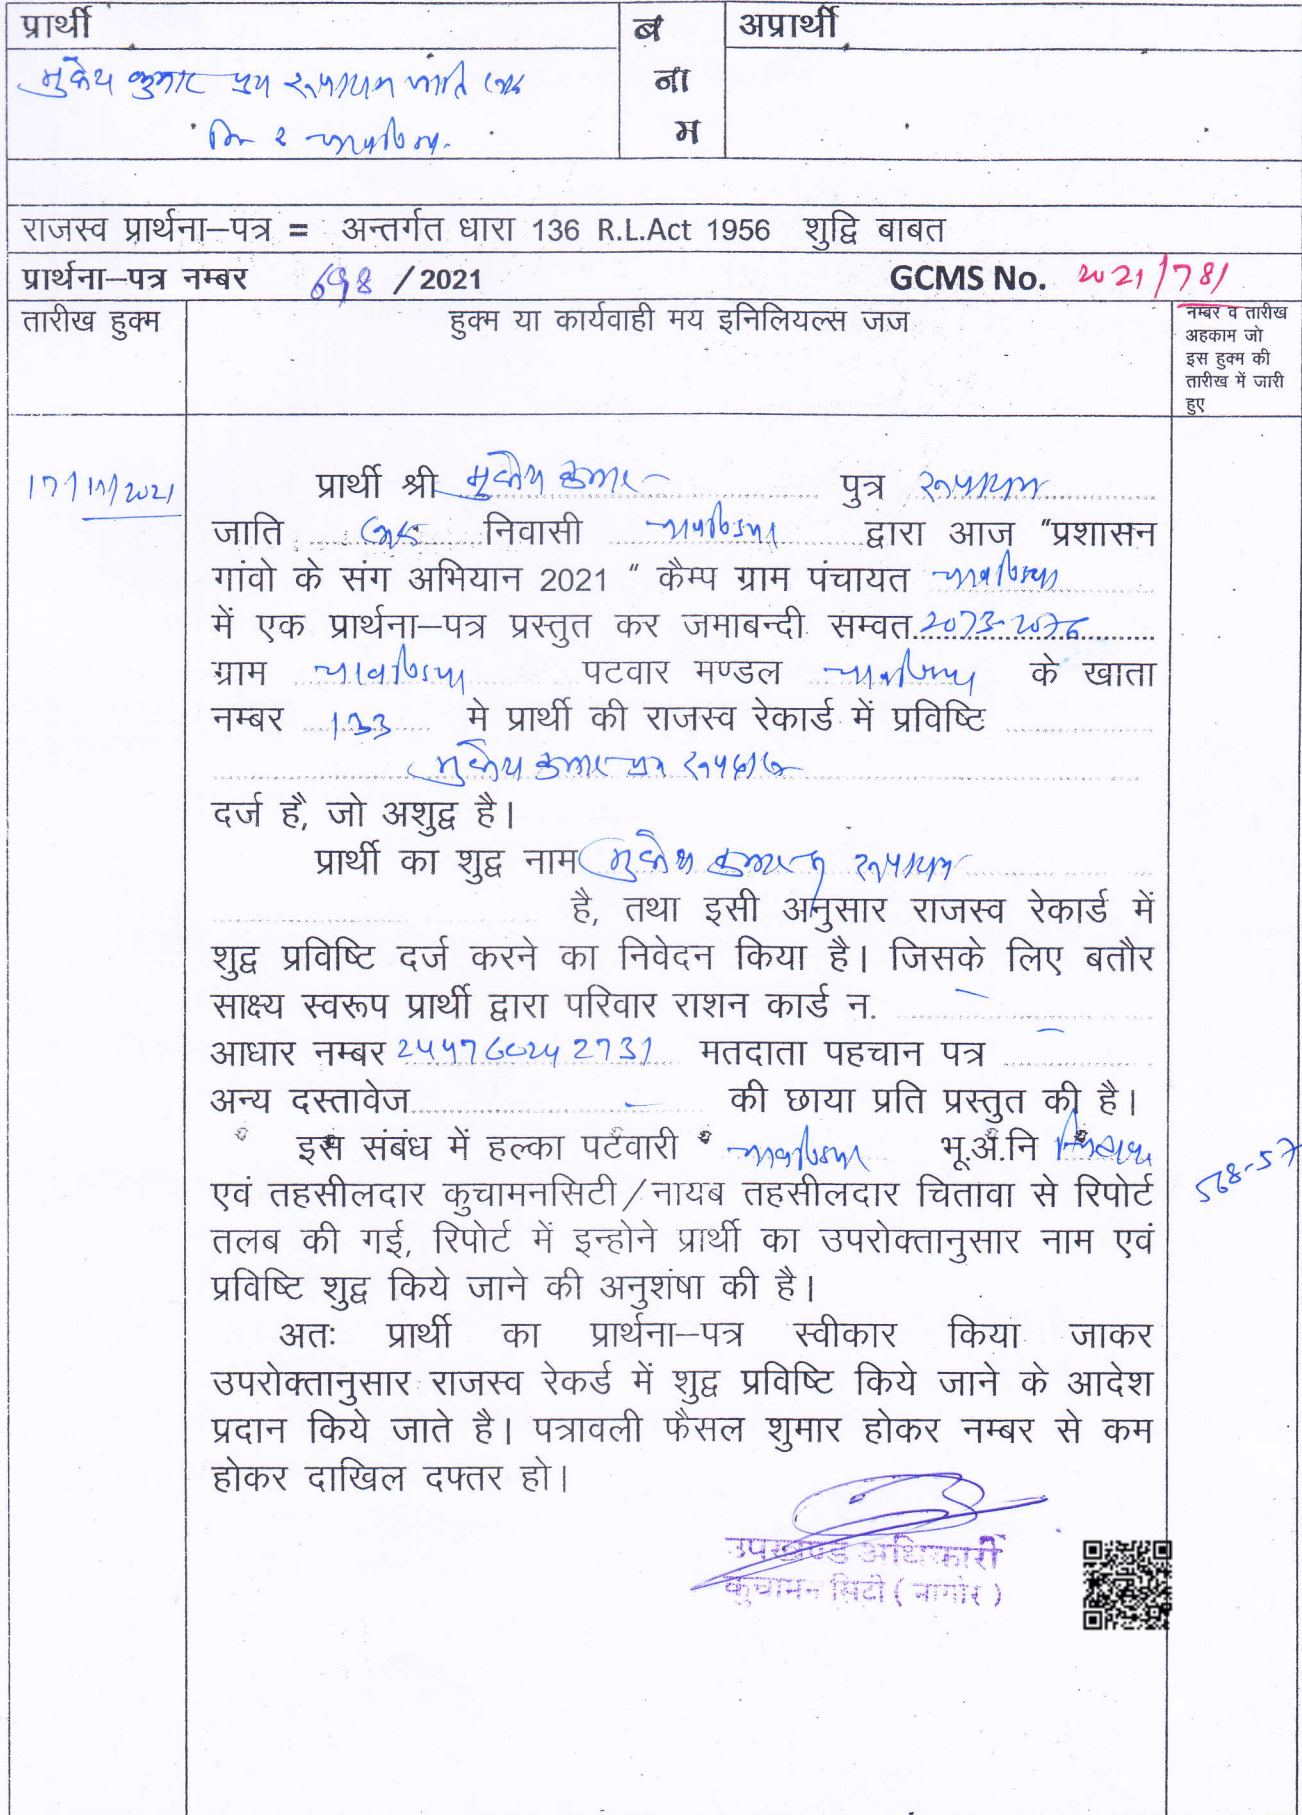 प्रार्थी
ब
ना
म
अप्रार्थी
मुकेश कुमार पुत्र रूपाराम जाति
राजस्व प्रार्थना–पत्र = अन्तर्गत धारा 136 R.L.Act 1956 शुद्वि बाबत
प्रार्थना–पत्र नम्बर 698 /2021 GCMS No. 2021/781
तारीख हुक्म
हुक्म या कार्यवाही मय इनिलियल्स जज
नम्बर व तारीख
अहकाम जो
इस हुक्म की
तारीख में जारी
हुए
17/11/2021
प्रार्थी श्री मुकेश कुमार पुत्र रूपाराम
जाति निवासी द्वारा आज "प्रशासन
गांवो के संग अभियान 2021 " कैम्प ग्राम पंचायत
में एक प्रार्थना–पत्र प्रस्तुत कर जमाबन्दी सम्वत 2073-2076
ग्राम पटवार मण्डल के खाता
नम्बर 133 मे प्रार्थी की राजस्व रेकार्ड में प्रविष्टि
मुकेश कुमार पुत्र
दर्ज है, जो अशुद्व है।
प्रार्थी का शुद्व नाम मुकेश कुमार रूपाराम
है, तथा इसी अनुसार राजस्व रेकार्ड में
शुद्व प्रविष्टि दर्ज करने का निवेदन किया है। जिसके लिए बतौर
साक्ष्य स्वरूप प्रार्थी द्वारा परिवार राशन कार्ड न. –
आधार नम्बर मतदाता पहचान पत्र –
अन्य दस्तावेज – की छाया प्रति प्रस्तुत की है।
इस संबंध में हल्का पटवारी भू.अ.नि
एवं तहसीलदार कुचामनसिटी/नायब तहसीलदार चितावा से रिपोर्ट
तलब की गई, रिपोर्ट में इन्होने प्रार्थी का उपरोक्तानुसार नाम एवं
प्रविष्टि शुद्व किये जाने की अनुशंषा की है।
568-57
अतः प्रार्थी का प्रार्थना–पत्र स्वीकार किया जाकर
उपरोक्तानुसार राजस्व रेकर्ड में शुद्व प्रविष्टि किये जाने के आदेश
प्रदान किये जाते है। पत्रावली फैसल शुमार होकर नम्बर से कम
होकर दाखिल दफ्तर हो।
उपखण्ड अधिकारी
कुचामन सिटी ( नागौर )